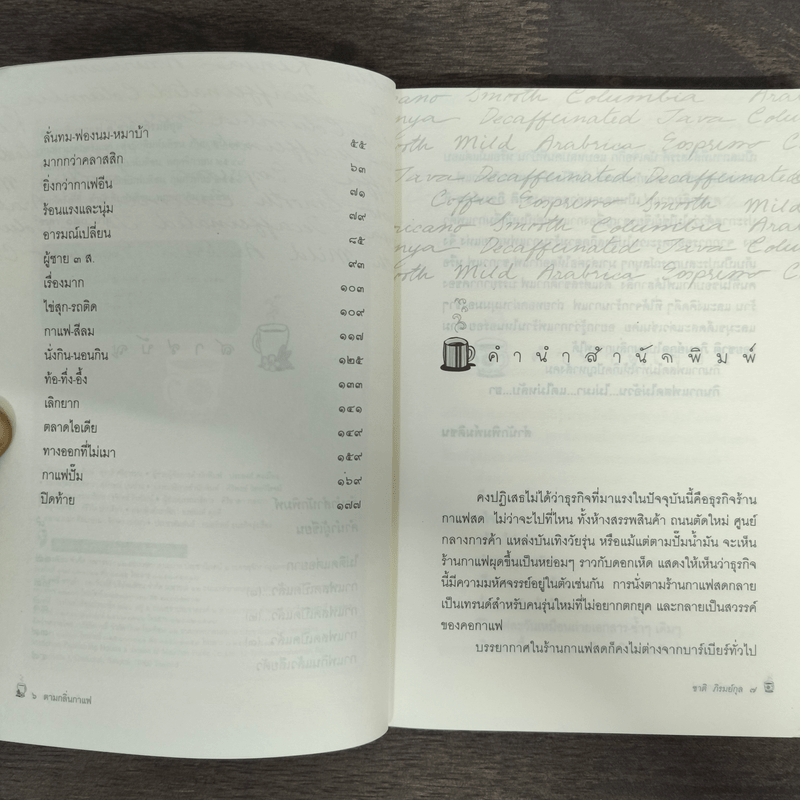 ลั่นทม-ฟองนม-หมาบ้า ๕๕
มากกว่าคลาสสิก ๖๓
ยิ่งกว่ากาเฟอีน ๗๑
ร้อนแรงและนุ่ม ๗๙
อารมณ์เปลี่ยน ๘๕
ผู้ชาย ๓ ส. ๙๓
เรื่องมาก ๑๐๓
ไข่สุก-รถติด ๑๐๙
กาแฟ-สีลม ๑๑๗
นั่งกิน-นอนกิน ๑๒๕
ท้อ-ทึ่ง-อึ้ง ๑๓๓
เลิกยาก ๑๔๑
ตลาดไอเดีย ๑๔๙
ทางออกที่ไม่เมา ๑๕๙
กาแฟปั๊ม ๑๖๙
ปิดท้าย ๑๗๗
๖ ตามกลิ่นกาแฟ
cano Smooth Columbia
nya Decaffeinated Java Colu
oth Mild Arabrica Expresso Co
Java Decaffeinated Decaffeinated
Coffee Expresso Smooth Mild
ricano Smooth Columbia Ara
nya Decaffeinated Java Colu
oth Mild Arabrica Expresso Co
คำนำสำนักพิมพ์
คงปฏิเสธไม่ได้ว่าธุรกิจที่มาแรงในปัจจุบันนี้คือธุรกิจร้าน
กาแฟสด ไม่ว่าจะไปที่ไหน ทั้งห้างสรรพสินค้า ถนนตัดใหม่ ศูนย์
กลางการค้า แหล่งบันเทิงวัยรุ่น หรือแม้แต่ตามปั๊มน้ำมัน จะเห็น
ร้านกาแฟผุดขึ้นเป็นหย่อมๆ ราวกับดอกเห็ด แสดงให้เห็นว่าธุรกิจ
นี้มีความมหัศจรรย์อยู่ในตัวเช่นกัน การนั่งตามร้านกาแฟสดกลาย
เป็นเทรนด์สำหรับคนรุ่นใหม่ที่ไม่อยากตกยุค และกลายเป็นสวรรค์
ของคอกาแฟ
บรรยากาศในร้านกาแฟสดก็คงไม่ต่างจากบาร์เบียร์ทั่วไป
ชาติ ภิรมย์กุล ๗